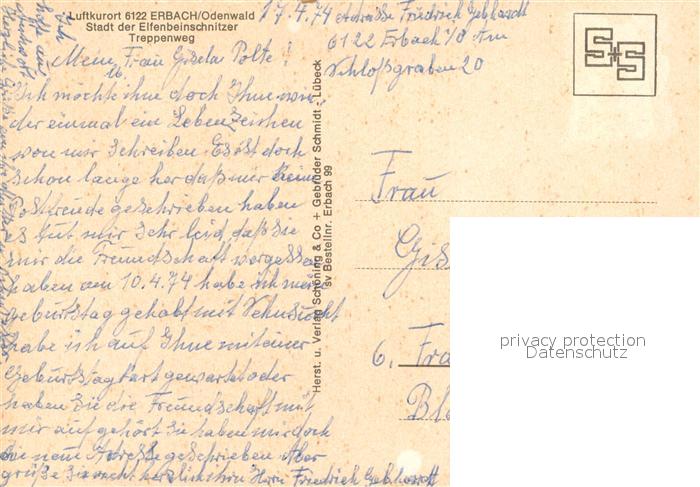 Luftkurort 6122 ERBACH/Odenwald
Stadt der Elfenbeinschnitzer
Treppenweg
17.4.74 Adresse Friedrich Gebhardt
6122 Erbach i/O Am
Schloßgraben 20
Mein Frau Gisela Polte!
Ich möchte ihne doch Ihne wie
der einmal ein Lebenzeichen
von mir Schreiben. Es ist doch
schon lange her daß mir keine
Postfreude geschrieben haben
s tut mir sehr leid, daß sie
mir die Freundschaft vergessa
haben am 10.4.74 habe ich mein
geburtstag gehabt mit Sehnsucht
habe ich auf Ihne mit einer
Geburtstagkart gewartet oder
haben Sie die Freundschaft mit
mir aufgehört Sie haben mir doch
die neue Adresse geschrieben. Aber
grüße Sie recht herzlich ihrn Herrn Friedrich Gebhardt
Herst. u. Verlag Schöning & Co + Gebrüder Schmidt - Lübeck
sv Bestellnr. Erbach 99
S+S
Frau
Gis
6. Fra
Bl
privacy protection
Datenschutz